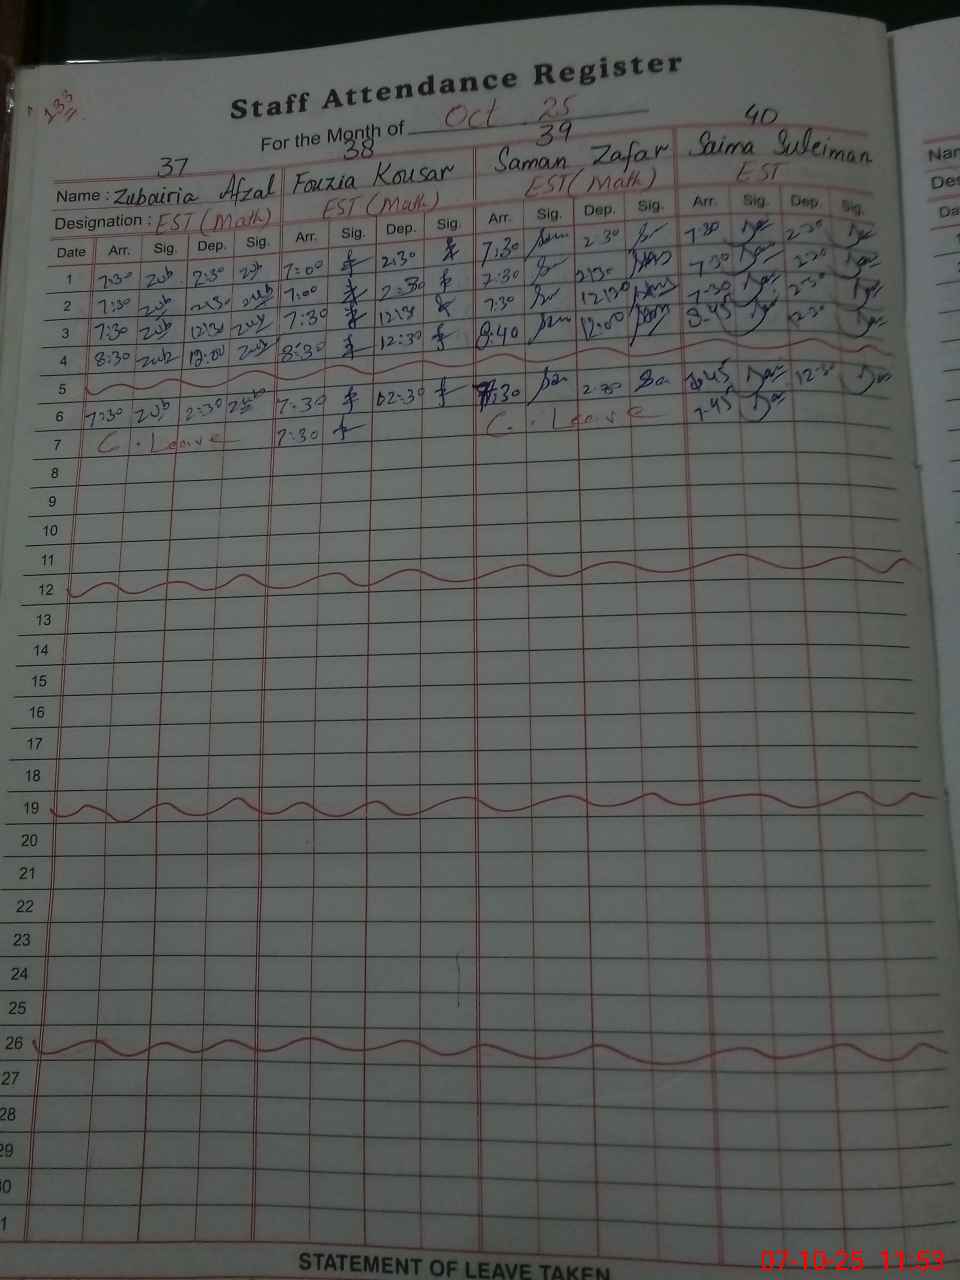 133
Staff Attendance Register
For the Month of Oct 25
37 38 39 40
Name : Zubairia Afzal Fouzia Kousar Saman Zafar Saima Suleiman
Designation : EST (Math) EST (Math) EST (Math) EST
Date Arr. Sig. Dep. Sig. Arr. Sig. Dep. Sig. Arr. Sig. Dep. Sig. Arr. Sig. Dep. Sig.
1 7:30 Zub 2:30 Zub 7:00 2:30 7:30 2:30 7:30 2:30
2 7:30 Zub 2:30 Zub 7:00 2:30 7:30 2:30 7:30 2:30
3 7:30 Zub 12:30 Zub 7:30 12:30 7:30 12:30 7:30 2:30
4 8:30 Zub 12:00 Zub 8:30 12:30 8:40 12:00 8:45 12:30
5
6 7:30 Zub 2:30 Zub 7:30 02:30 7:30 2:30 7:45 12:30
7 C. Leave 7:30 C. Leave 7:45
8
9
10
11
12
13
14
15
16
17
18
19
20
21
22
23
24
25
26
27
28
29
30
1
STATEMENT OF LEAVE TAKEN
Nar
Des
Da
07-10-25 11:53